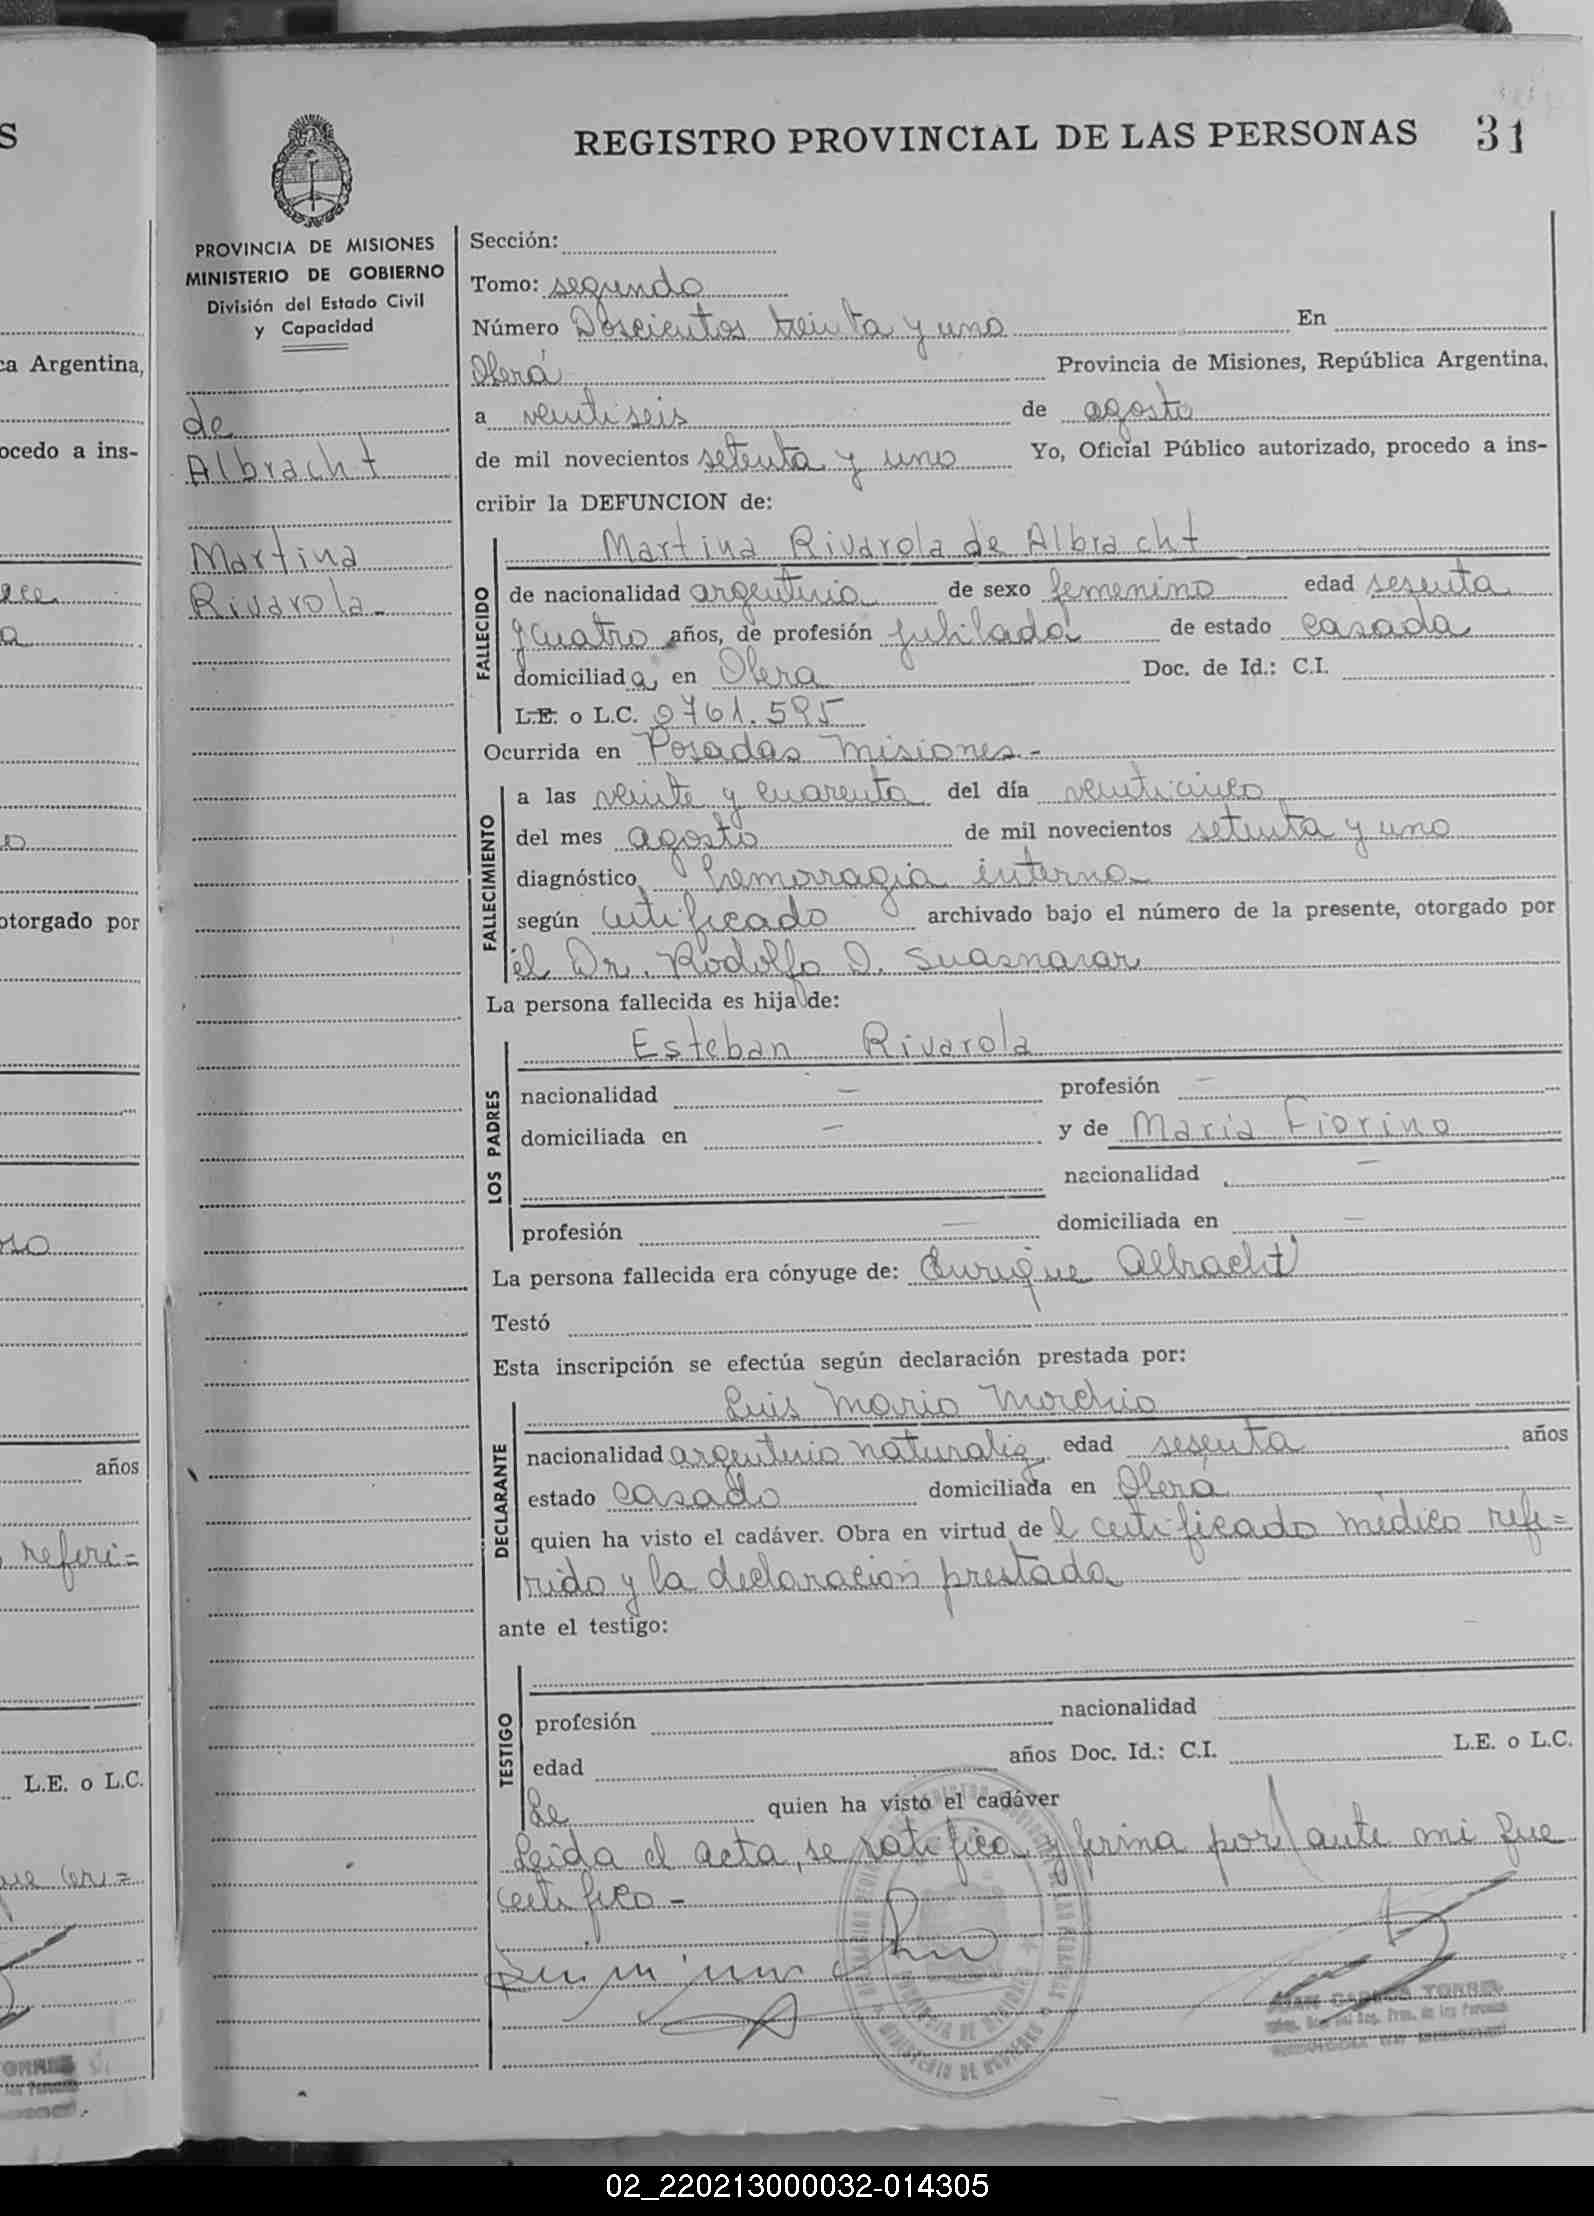 S
ca Argentina,
ocedo a ins-
otorgado por
años
referi=
L.E. o L.C.
REGISTRO PROVINCIAL DE LAS PERSONAS 31
PROVINCIA DE MISIONES
MINISTERIO DE GOBIERNO
División del Estado Civil
y Capacidad
de
Albracht
Martina
Rivarola-
Sección:
Tomo: segundo
Número Doscientos treinta y uno En
Oberá Provincia de Misiones, República Argentina,
a veintiseis de agosto
de mil novecientos setenta y uno Yo, Oficial Público autorizado, procedo a ins-
cribir la DEFUNCION de:
Martina Rivarola de Albracht
FALLECIDO
de nacionalidad argentina de sexo femenino edad sesenta
y cuatro años, de profesión jubilada de estado casada
domiciliada, en Obera Doc. de Id.: C.I.
L.E. o L.C. 0761.595
Ocurrida en Posadas Misiones-
FALLECIMIENTO
a las veinte y cuarenta del día veinticinco
del mes agosto de mil novecientos setenta y uno
diagnóstico hemorragia interna
según certificado archivado bajo el número de la presente, otorgado por
él Dr. Rodolfo D. Suasnavar
La persona fallecida es hija de:
LOS PADRES
Esteban Rivarola
nacionalidad — profesión —
domiciliada en — y de Maria Fiorino
nacionalidad —
profesión — domiciliada en —
La persona fallecida era cónyuge de: Enrique Albracht
Testó
Esta inscripción se efectúa según declaración prestada por:
DECLARANTE
Luis Mario Morchio
nacionalidad argentino naturaliz edad sesenta años
estado casado domiciliada en Oberá
quien ha visto el cadáver. Obra en virtud del certificado médico refe=
rido y la declaración prestada
ante el testigo:
TESTIGO
profesión nacionalidad
edad años Doc. Id.: C.I. L.E. o L.C.
Le quien ha visto el cadáver
Leida el acta, se ratifica y firma por ante mi que
certifico-
JUAN CARLOS TORRES
02_220213000032-014305